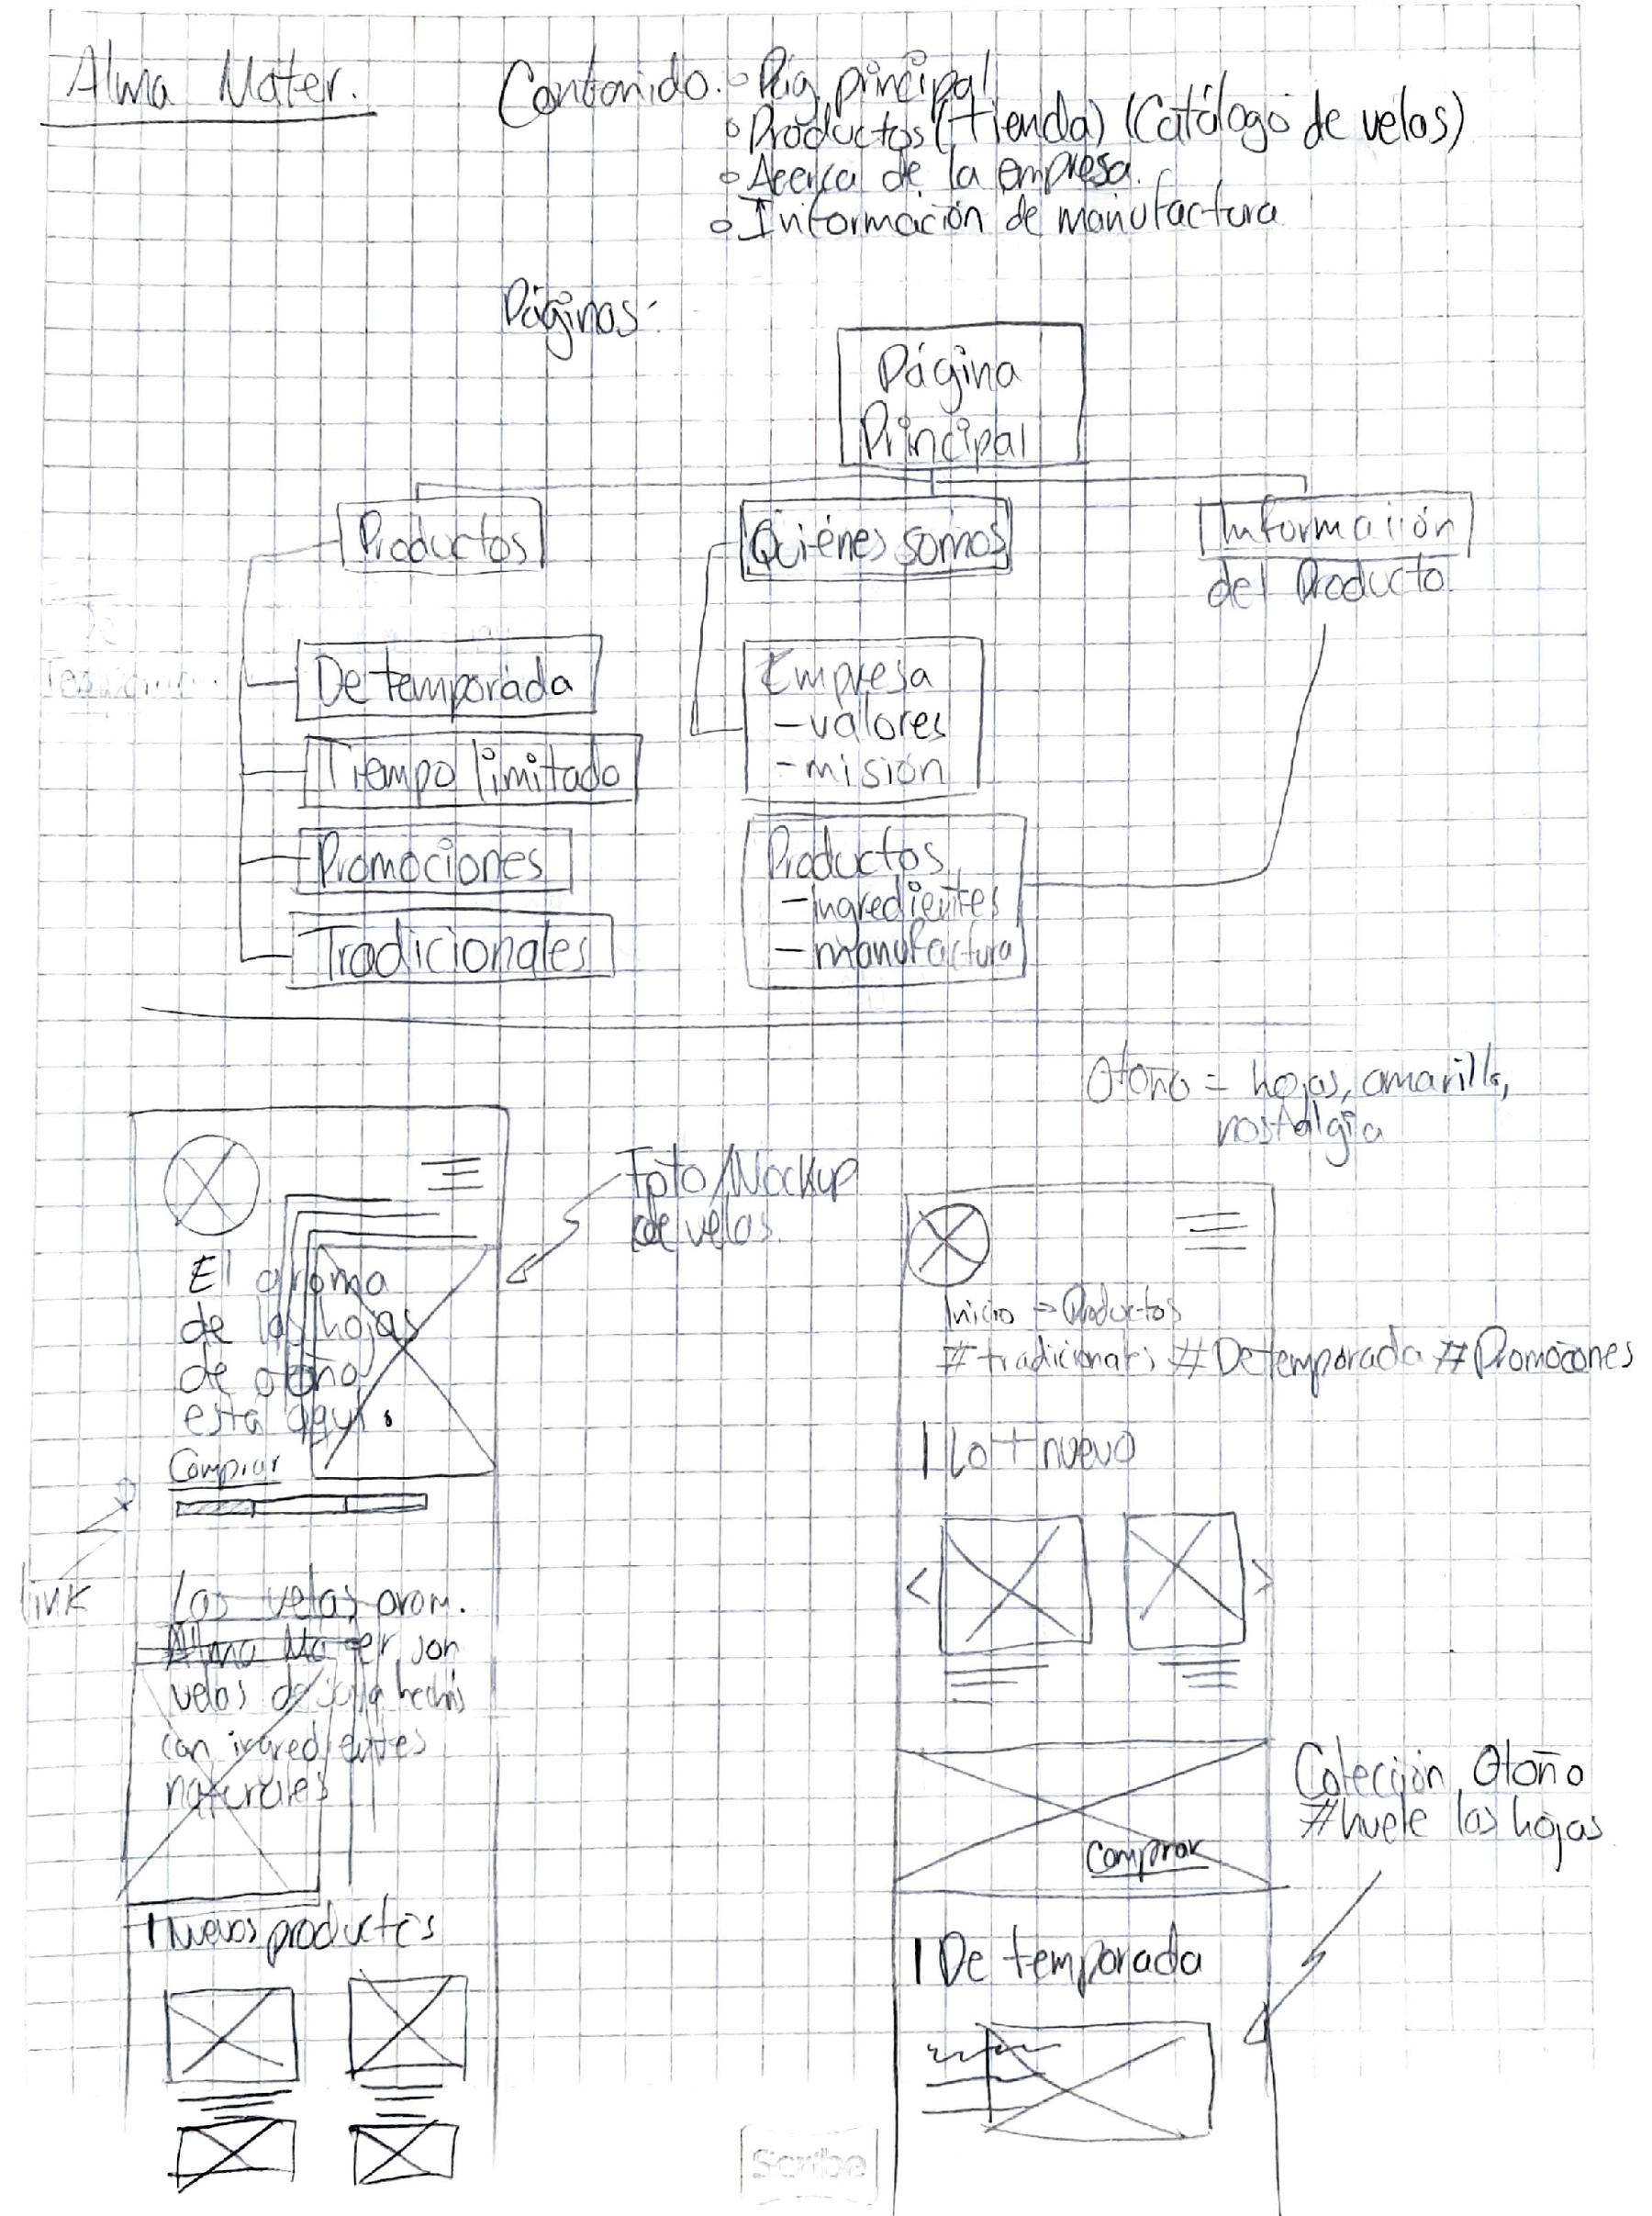 Alma Mater.
Contenido. ◦ Pág. principal
◦ Productos (tienda) (Catálogo de velas)
◦ Acerca de la empresa.
◦ Información de manufactura
Páginas:
Página
Principal
Productos
Quiénes somos
Información
del Producto
De temporada
Tiempo limitado
Promociones
Tradicionales
Empresa
- valores
- misión
Productos
- ingredientes
- manufactura
Otoño = hojas, amarillo,
nostalgia
Foto/Mockup
de velas.
El aroma
de las hojas
de otoño
está aquí.
Comprar
link
Las velas arom.
Alma Mater son
velas de soya hechas
con ingredientes
naturales
| Nuevos productos
Inicio → Productos
#tradicionales #De temporada #Promociones
| Lo + nuevo
< >
Comprar
Colección Otoño
#huele las hojas
| De temporada
Scribe